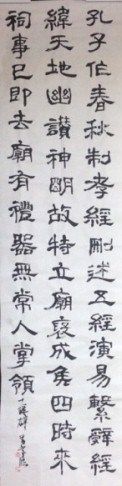 孔子作春秋制孝經刪述五經演易繫辭經
緯天地幽讚神明故特立廟褒成侯四時來
祠事已即去廟有禮器無常人掌領 乙瑛碑